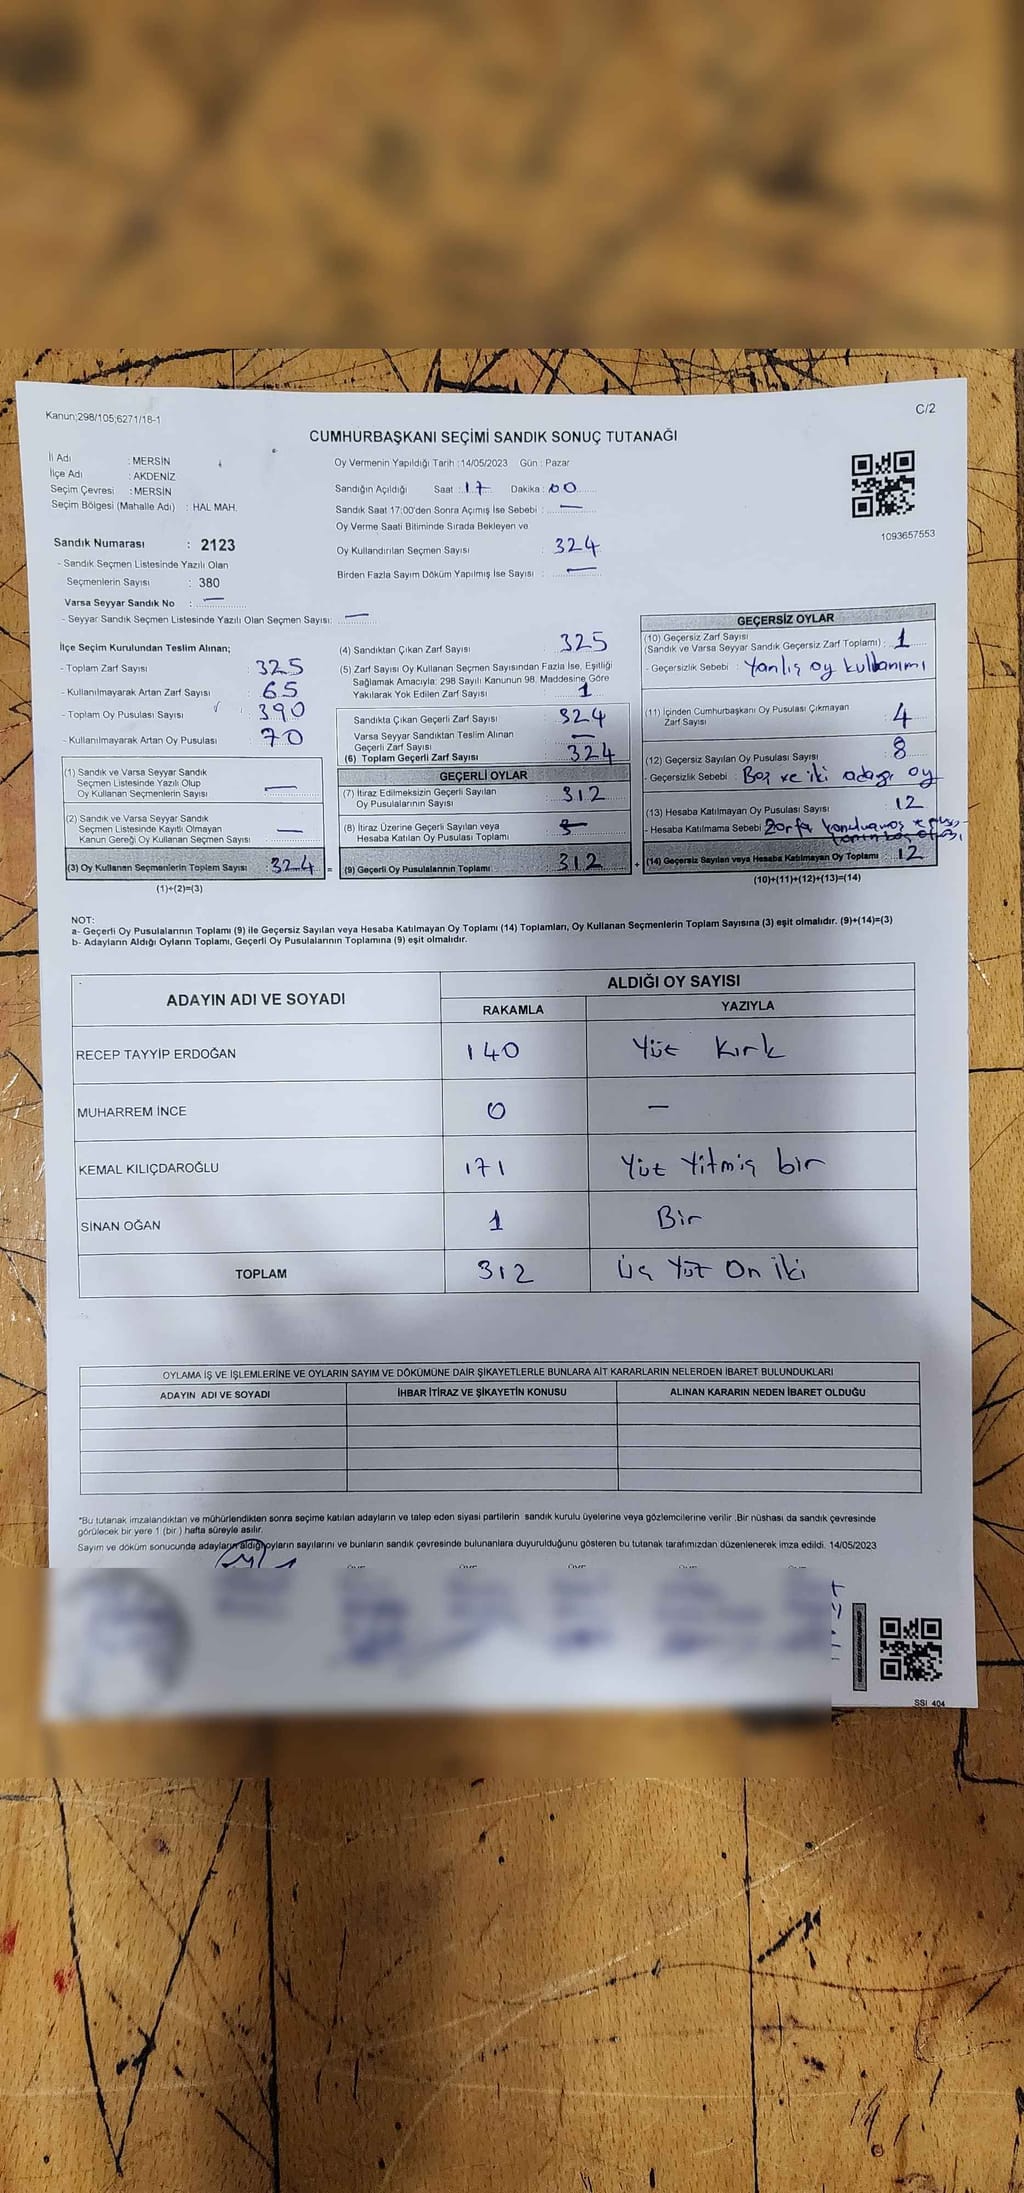 Kanun;298/105;6271/18-1
C/2
CUMHURBAŞKANI SEÇİMİ SANDIK SONUÇ TUTANAĞI
İl Adı : MERSİN
İlçe Adı : AKDENİZ
Seçim Çevresi : MERSİN
Seçim Bölgesi (Mahalle Adı) : HAL MAH.
Sandık Numarası : 2123
- Sandık Seçmen Listesinde Yazılı Olan
Seçmenlerin Sayısı : 380
Varsa Seyyar Sandık No : —
- Seyyar Sandık Seçmen Listesinde Yazılı Olan Seçmen Sayısı: —
Oy Vermenin Yapıldığı Tarih :14/05/2023 Gün : Pazar
Sandığın Açıldığı Saat : 17 Dakika : 00
Sandık Saat 17:00'den Sonra Açımış İse Sebebi : —
Oy Verme Saati Bitiminde Sırada Bekleyen ve
Oy Kullandırılan Seçmen Sayısı : 324
Birden Fazla Sayım Döküm Yapılmış İse Sayısı : —
1093657553
İlçe Seçim Kurulundan Teslim Alınan;
- Toplam Zarf Sayısı : 325
- Kullanılmayarak Artan Zarf Sayısı : 65
- Toplam Oy Pusulası Sayısı : 390
- Kullanılmayarak Artan Oy Pusulası : 70
(1) Sandık ve Varsa Seyyar Sandık
Seçmen Listesinde Yazılı Olup
Oy Kullanan Seçmenlerin Sayısı : —
(2) Sandık ve Varsa Seyyar Sandık
Seçmen Listesinde Kayıtlı Olmayan
Kanun Gereği Oy Kullanan Seçmen Sayısı : —
(3) Oy Kullanan Seçmenlerin Toplam Sayısı : 324 =
(1)+(2)=(3)
(4) Sandıktan Çıkan Zarf Sayısı : 325
(5) Zarf Sayısı Oy Kullanan Seçmen Sayısından Fazla İse, Eşitliği
Sağlamak Amacıyla: 298 Sayılı Kanunun 98. Maddesine Göre
Yakılarak Yok Edilen Zarf Sayısı : 1
Sandıkta Çıkan Geçerli Zarf Sayısı : 324
Varsa Seyyar Sandıktan Teslim Alınan
Geçerli Zarf Sayısı : —
(6) Toplam Geçerli Zarf Sayısı : 324
GEÇERLİ OYLAR
(7) İtiraz Edilmeksizin Geçerli Sayılan
Oy Pusulalarının Sayısı : 312
(8) İtiraz Üzerine Geçerli Sayılan veya
Hesaba Katılan Oy Pusulası Toplamı :
(9) Geçerli Oy Pusulalarının Toplamı : 312 +
GEÇERSİZ OYLAR
(10) Geçersiz Zarf Sayısı
(Sandık ve Varsa Seyyar Sandık Geçersiz Zarf Toplamı) : 1
- Geçersizlik Sebebi : Yanlış oy kullanımı
(11) İçinden Cumhurbaşkanı Oy Pusulası Çıkmayan
Zarf Sayısı : 4
(12) Geçersiz Sayılan Oy Pusulası Sayısı : 8
- Geçersizlik Sebebi : Boş ve iki adaya oy
(13) Hesaba Katılmayan Oy Pusulası Sayısı : 12
- Hesaba Katılmama Sebebi :
(14) Geçersiz Sayılan veya Hesaba Katılmayan Oy Toplamı : 12
(10)+(11)+(12)+(13)=(14)
NOT:
a- Geçerli Oy Pusulalarının Toplamı (9) ile Geçersiz Sayılan veya Hesaba Katılmayan Oy Toplamı (14) Toplamları, Oy Kullanan Seçmenlerin Toplam Sayısına (3) eşit olmalıdır. (9)+(14)=(3)
b- Adayların Aldığı Oyların Toplamı, Geçerli Oy Pusulalarının Toplamına (9) eşit olmalıdır.
ADAYIN ADI VE SOYADI
ALDIĞI OY SAYISI
RAKAMLA YAZIYLA
RECEP TAYYİP ERDOĞAN 140 Yüz Kırk
MUHARREM İNCE 0 —
KEMAL KILIÇDAROĞLU 171 Yüz Yitmiş bir
SİNAN OĞAN 1 Bir
TOPLAM 312 Üç Yüz On iki
OYLAMA İŞ VE İŞLEMLERİNE VE OYLARIN SAYIM VE DÖKÜMÜNE DAİR ŞİKAYETLERLE BUNLARA AİT KARARLARIN NELERDEN İBARET BULUNDUKLARI
ADAYIN ADI VE SOYADI İHBAR İTİRAZ VE ŞİKAYETİN KONUSU ALINAN KARARIN NEDEN İBARET OLDUĞU
*Bu tutanak imzalandıktan ve mühürlendikten sonra seçime katılan adayların ve talep eden siyasi partilerin sandık kurulu üyelerine veya gözlemcilerine verilir .Bir nüshası da sandık çevresinde
görülecek bir yere 1 (bir ) hafta süreyle asılır.
Sayım ve döküm sonucunda adayların aldığı oyların sayılarını ve bunların sandık çevresinde bulunanlara duyurulduğunu gösteren bu tutanak tarafımızdan düzenlenerek imza edildi. 14/05/2023
SSI 404